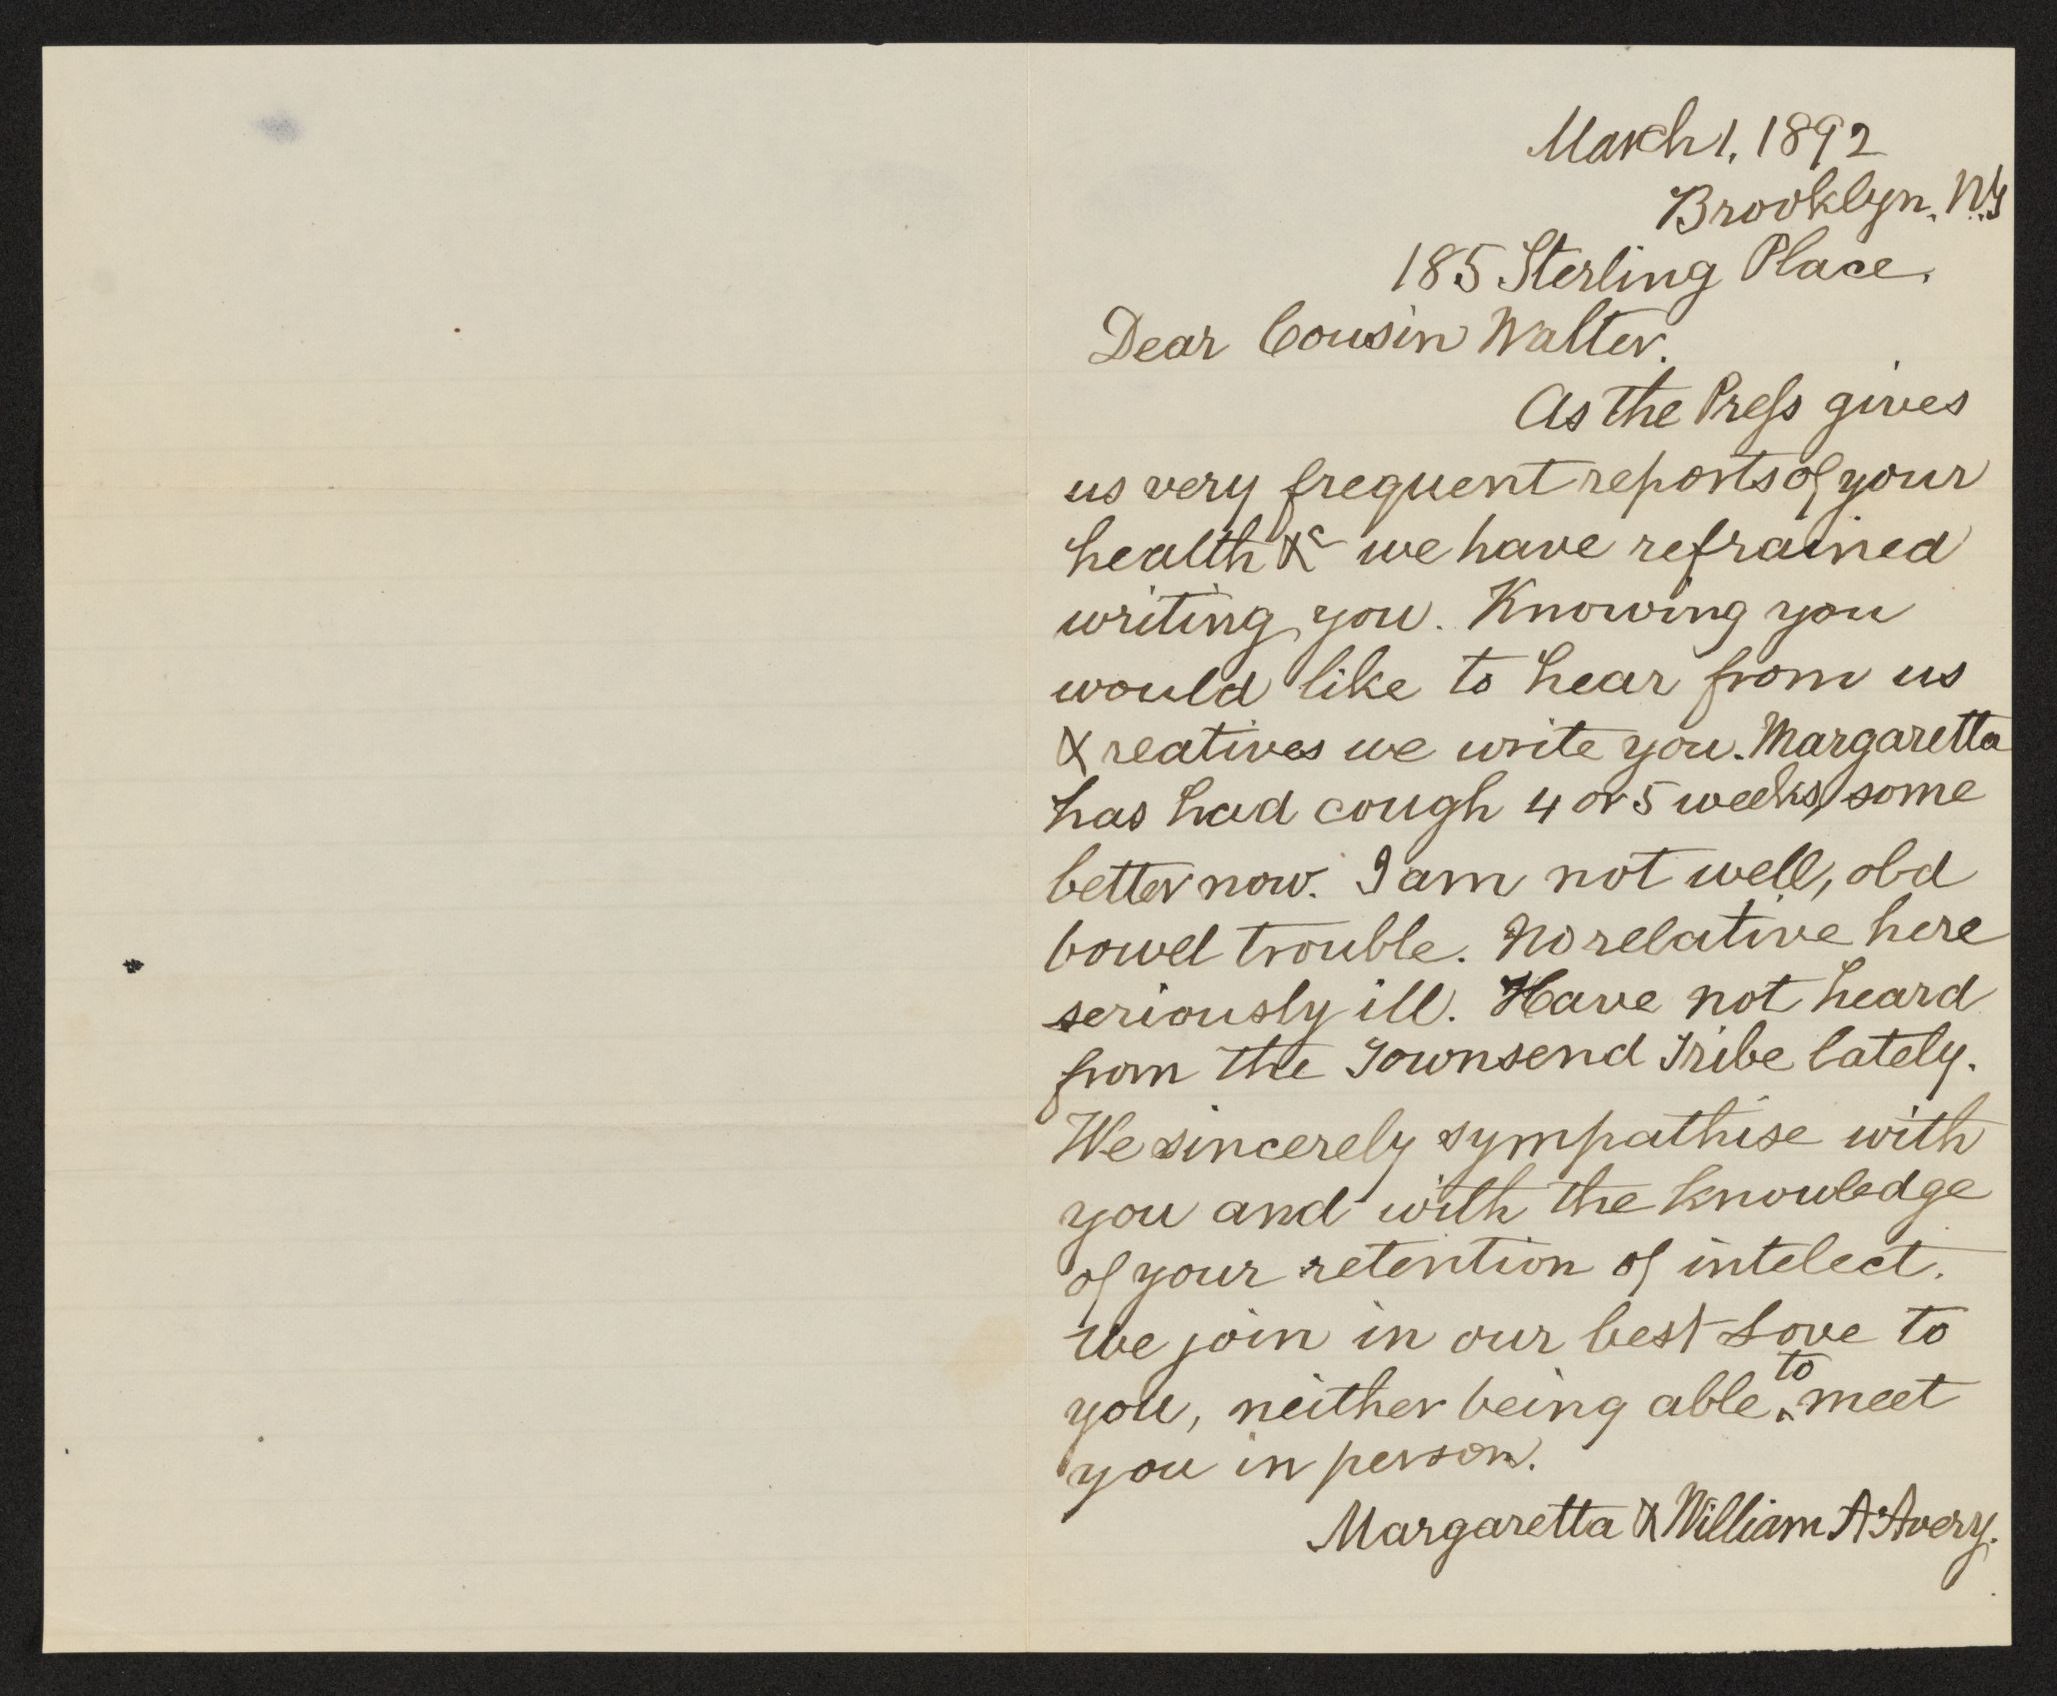 March 1, 1892
Brooklyn. N.Y
185 Sterling Place.
Dear Cousin Walter.
As the Press gives
us very frequent reports of your
health &c we have refrained
writing you. Knowing you
would like to hear from us
& reatives we write you. Margaretta
has had cough 4 or 5 weeks, some
better now. I am not well, old
bowel trouble. No relative here
seriously ill. Have not heard
from the Townsend Tribe lately.
We sincerely sympathise with
you and with the knowledge
of your retention of intelect.
We join in our best Love to
you, neither being able to meet
you in person.
Margaretta & William A Avery.